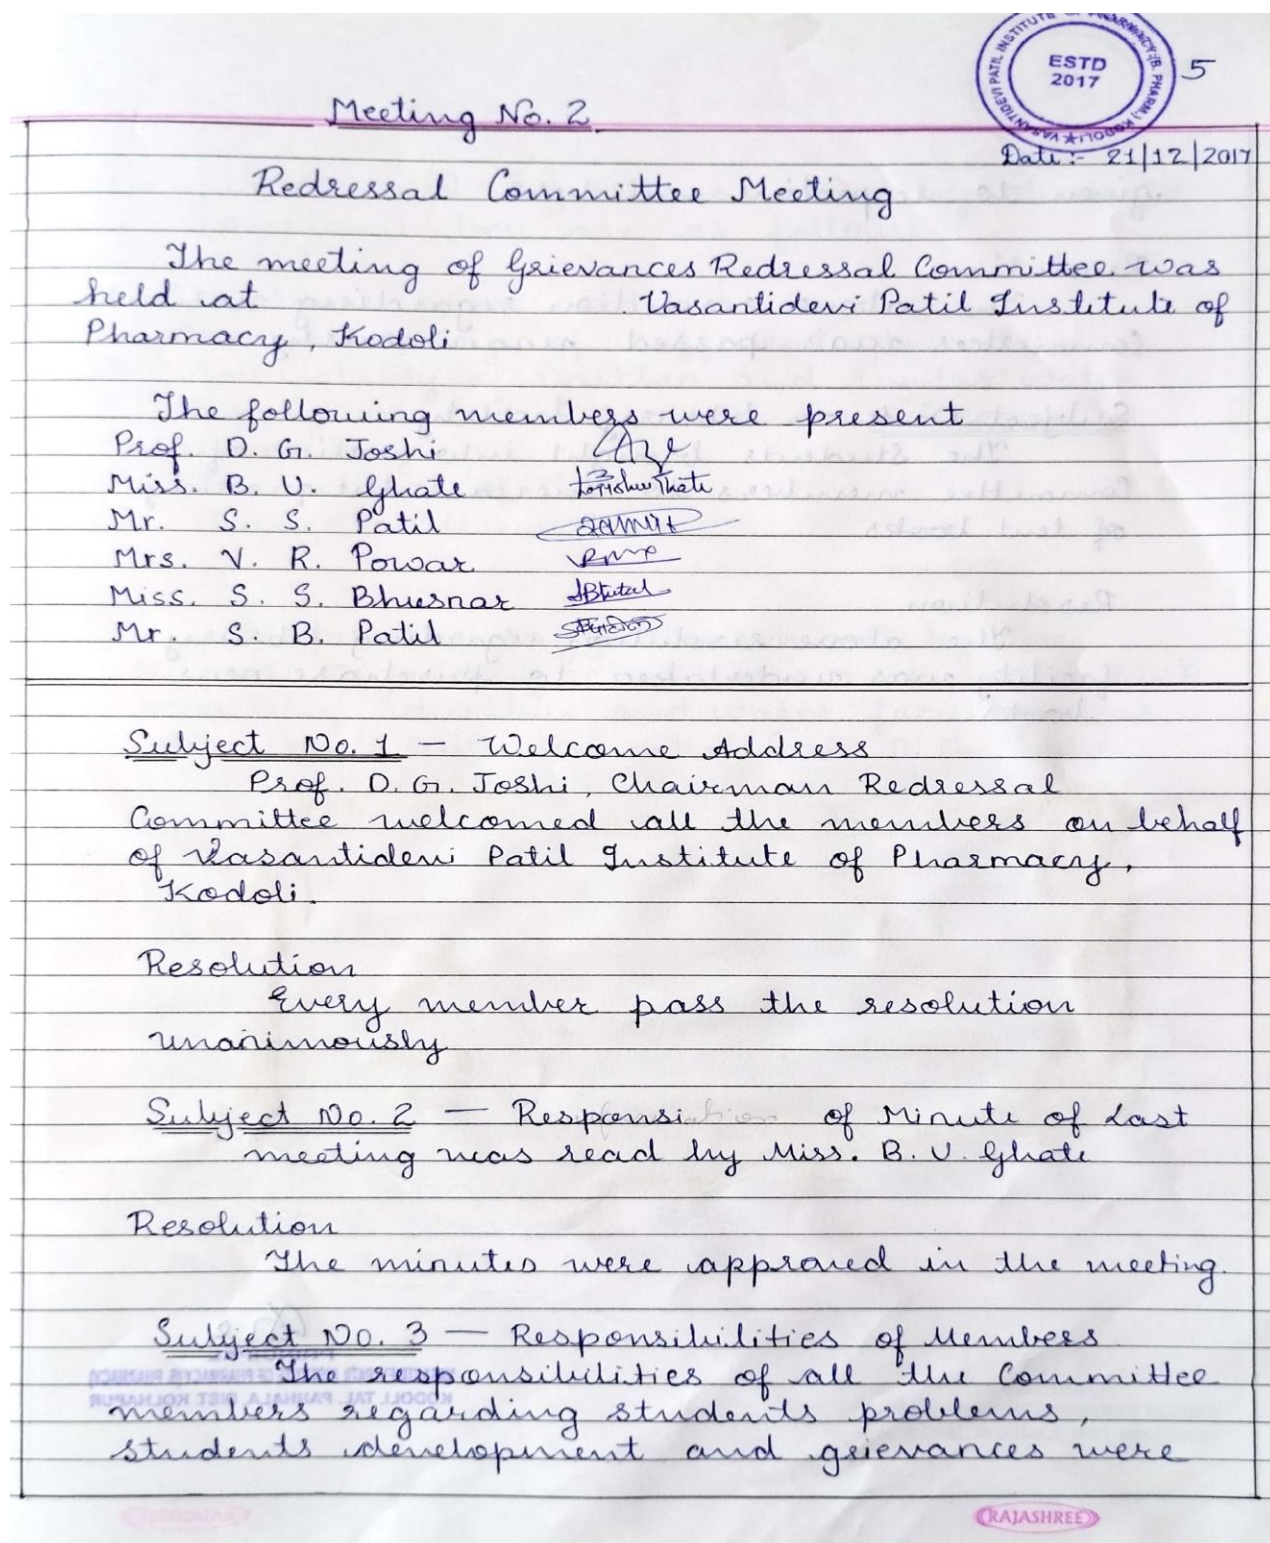 VASANTIDEVI PATIL INSTITUTE OF PHARMACY (B. PHARM.) KODOLI
ESTD
2017
5
Meeting No. 2
Date:- 21/12/2017
Redressal Committee Meeting
The meeting of Grievances Redressal Committee was
held at Vasantidevi Patil Institute of
Pharmacy, Kodoli
The following members were present
Prof. D. G. Joshi
Miss. B. U. Ghate
Mr. S. S. Patil
Mrs. V. R. Powar
Miss. S. S. Bhusnar
Mr. S. B. Patil
Subject No. 1 – Welcome Address
Prof. D. G. Joshi, Chairman Redressal
Committee welcomed all the members on behalf
of Vasantidevi Patil Institute of Pharmacy,
Kodoli.
Resolution
Every member pass the resolution
unanimously
Subject No. 2 – Responsi of Minute of Last
meeting was read by Miss. B. U. Ghate
Resolution
The minutes were approved in the meeting.
Subject No. 3 – Responsibilities of Members
The responsibilities of all the Committee
members regarding students problems,
students development and grievances were
RAJASHREE